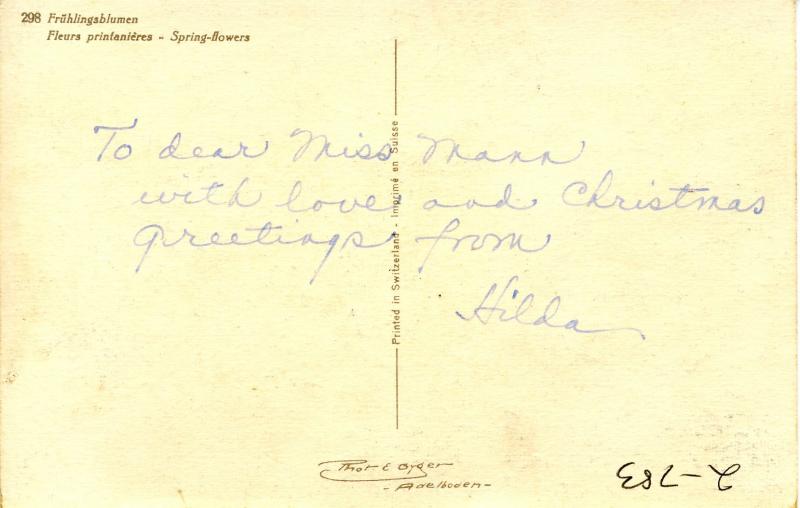 298 Frühlingsblumen
Fleurs printanières - Spring-flowers
To dear Miss Mann
with love and Christmas
greetings from
Hilda
Printed in Switzerland - Imprimé en Suisse
Phot E Gyger
- Adelboden -